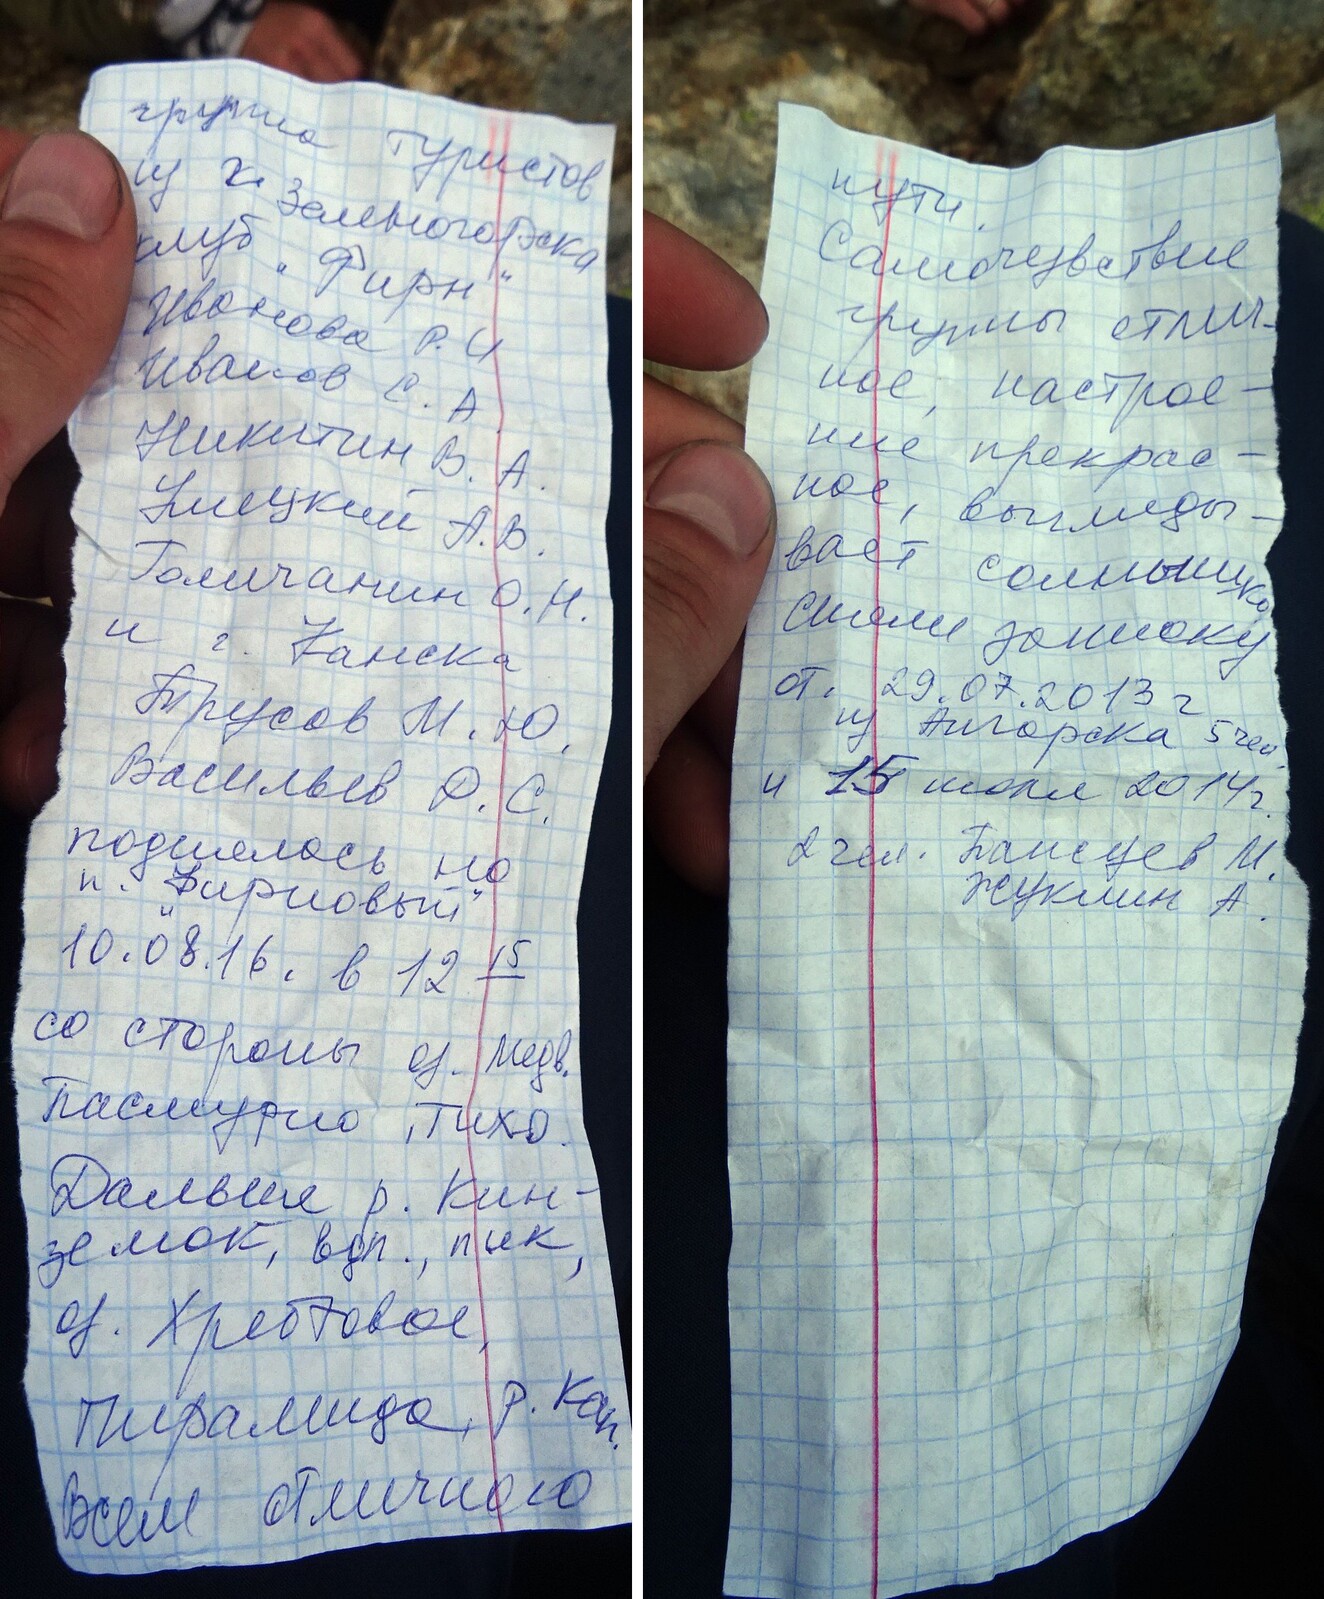 группа туристов
из г. Зеленогорска
клуб "Фирн"
Иванова Р.И
Иванов С.А.
Никитин В.А.
Улецкий А.В.
Голичанин О.Н.
и г. Канска
Трусов М.Ю.
Васильев Д.С.
поднялась на
п. "Фирновый"
10.08.16. в 12 15
со стороны оз. Медв.
Пасмурно, тихо.
Дальше р. Кин-
земок, вдп., пик,
оз. Хребтовое,
Пирамида, р. Кап.
Всем отличного
пути.
Самочувствие
группы отлич-
ное, настрое-
ние прекрас-
ное, выгляды-
вает солнышко
сняли записку
от. 29.07.2013 г
из Ангарска 5 чел.
и 15 июля 2014г.
2 чел. М.
Жуклин А.